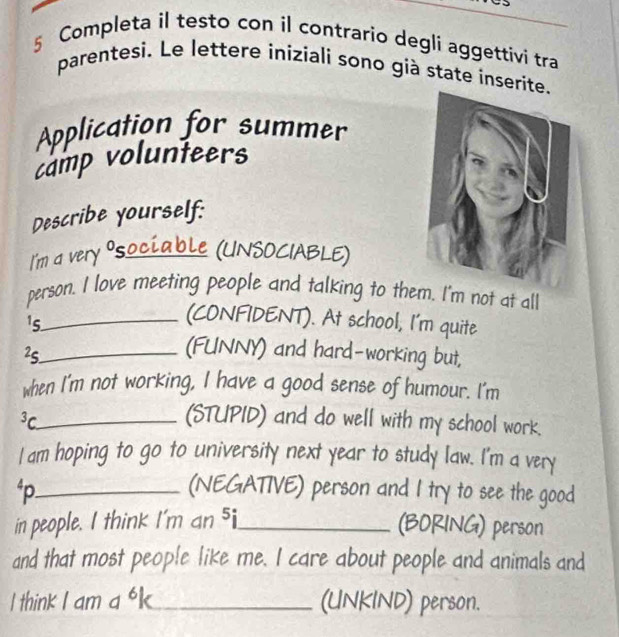 5 Completa il testo con il contrario degli aggettivi tra
parentesi. Le lettere iniziali sono già state inserite.
Application for summer
camp volunteers
Describe yourself:
I'm a very ⁰sociable (UNSOCIABLE)
person. I love meeting people and talking to them. I'm not at all
¹s____________ (CONFIDENT). At school, I'm quite
²s____________ (FUNNY) and hard-working but,
when I'm not working, I have a good sense of humour. I'm
³c____________ (STUPID) and do well with my school work.
I am hoping to go to university next year to study law. I'm a very
⁴p____________ (NEGATIVE) person and I try to see the good
in people. I think I'm an ⁵i____________ (BORING) person
and that most people like me. I care about people and animals and
I think I am a ⁶k____________ (UNKIND) person.